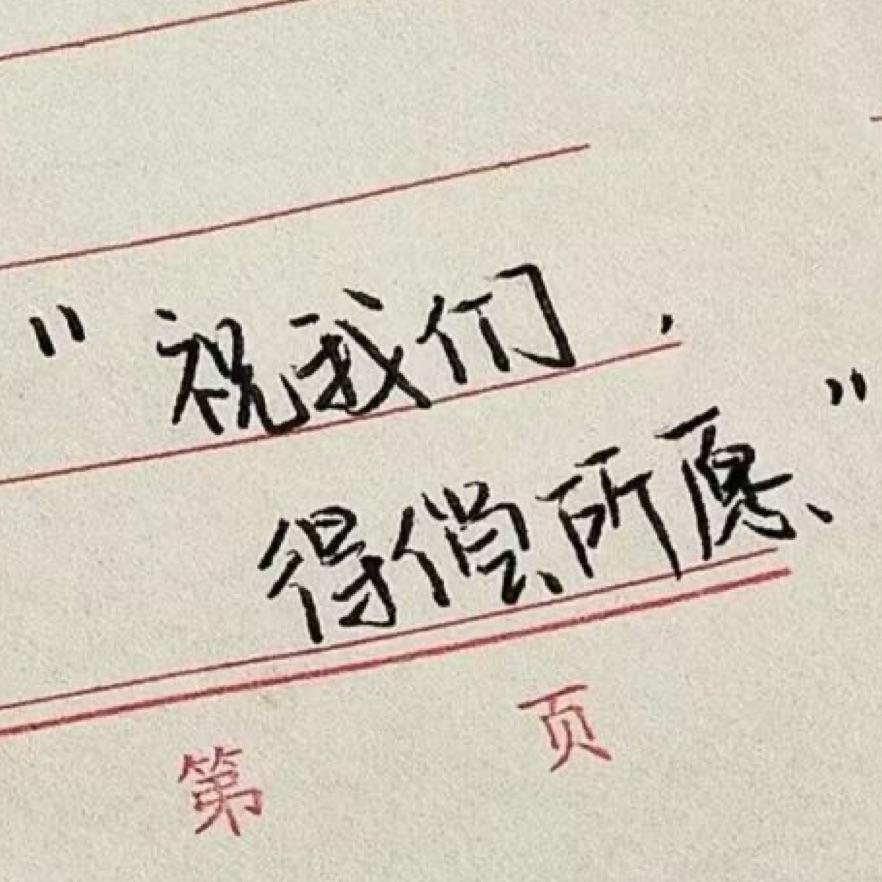 "祝我们，
得偿所愿"
第 页